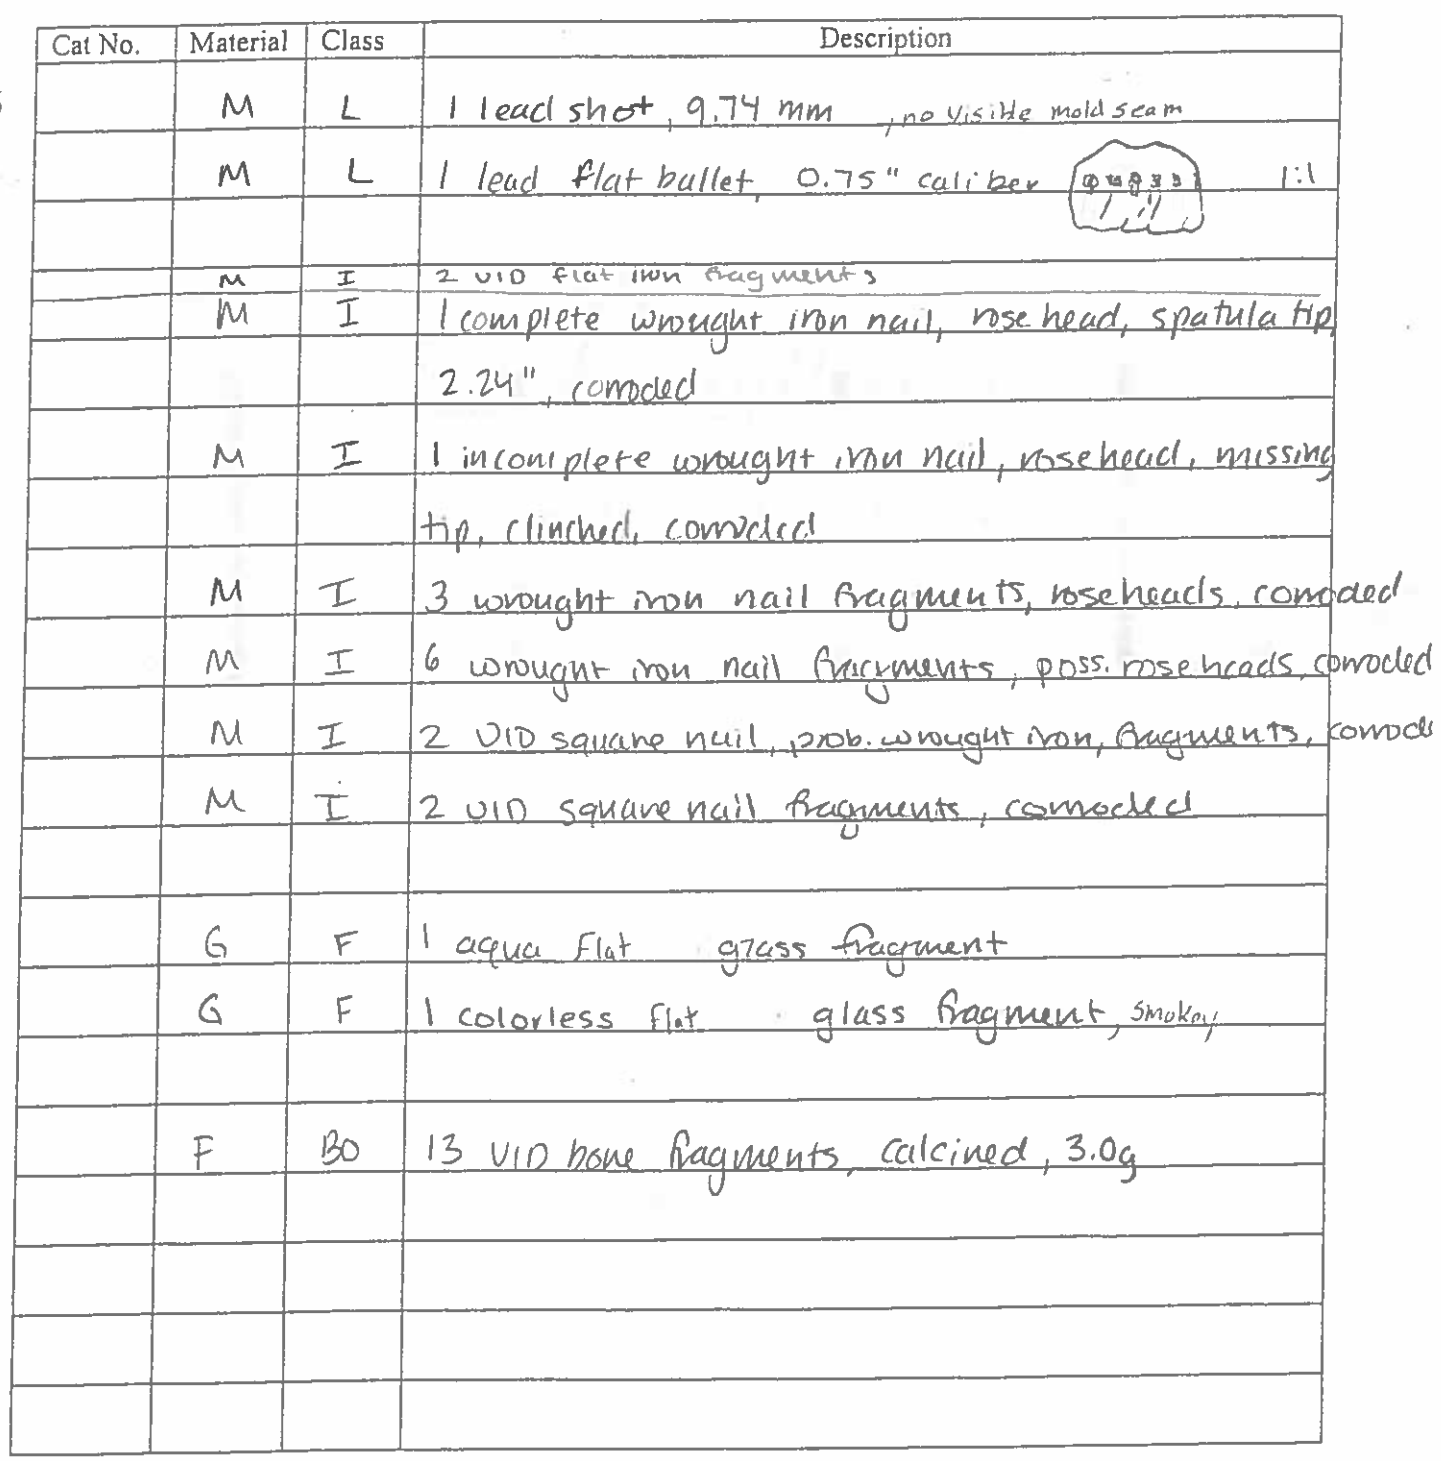 Cat No. Material Class Description
M L 1 lead shot, 9.74 mm, no visible mold seam
M L 1 lead flat bullet, 0.75" caliber 1:1
M I 2 UID flat iron fragments
M I 1 complete wrought iron nail, rose head, spatula tip
2.24", corroded
M I 1 incomplete wrought iron nail, rosehead, missing
tip, clinched, corroded
M I 3 wrought iron nail fragments, roseheads, corroded
M I 6 wrought iron nail fragments, poss. roseheads, corroded
M I 2 UID square nail, prob. wrought iron, fragments, corrode
M I 2 UID square nail fragments, corroded
G F 1 aqua flat glass fragment
G F 1 colorless flat glass fragment, smokey
F BO 13 UID bone fragments, calcined, 3.0g